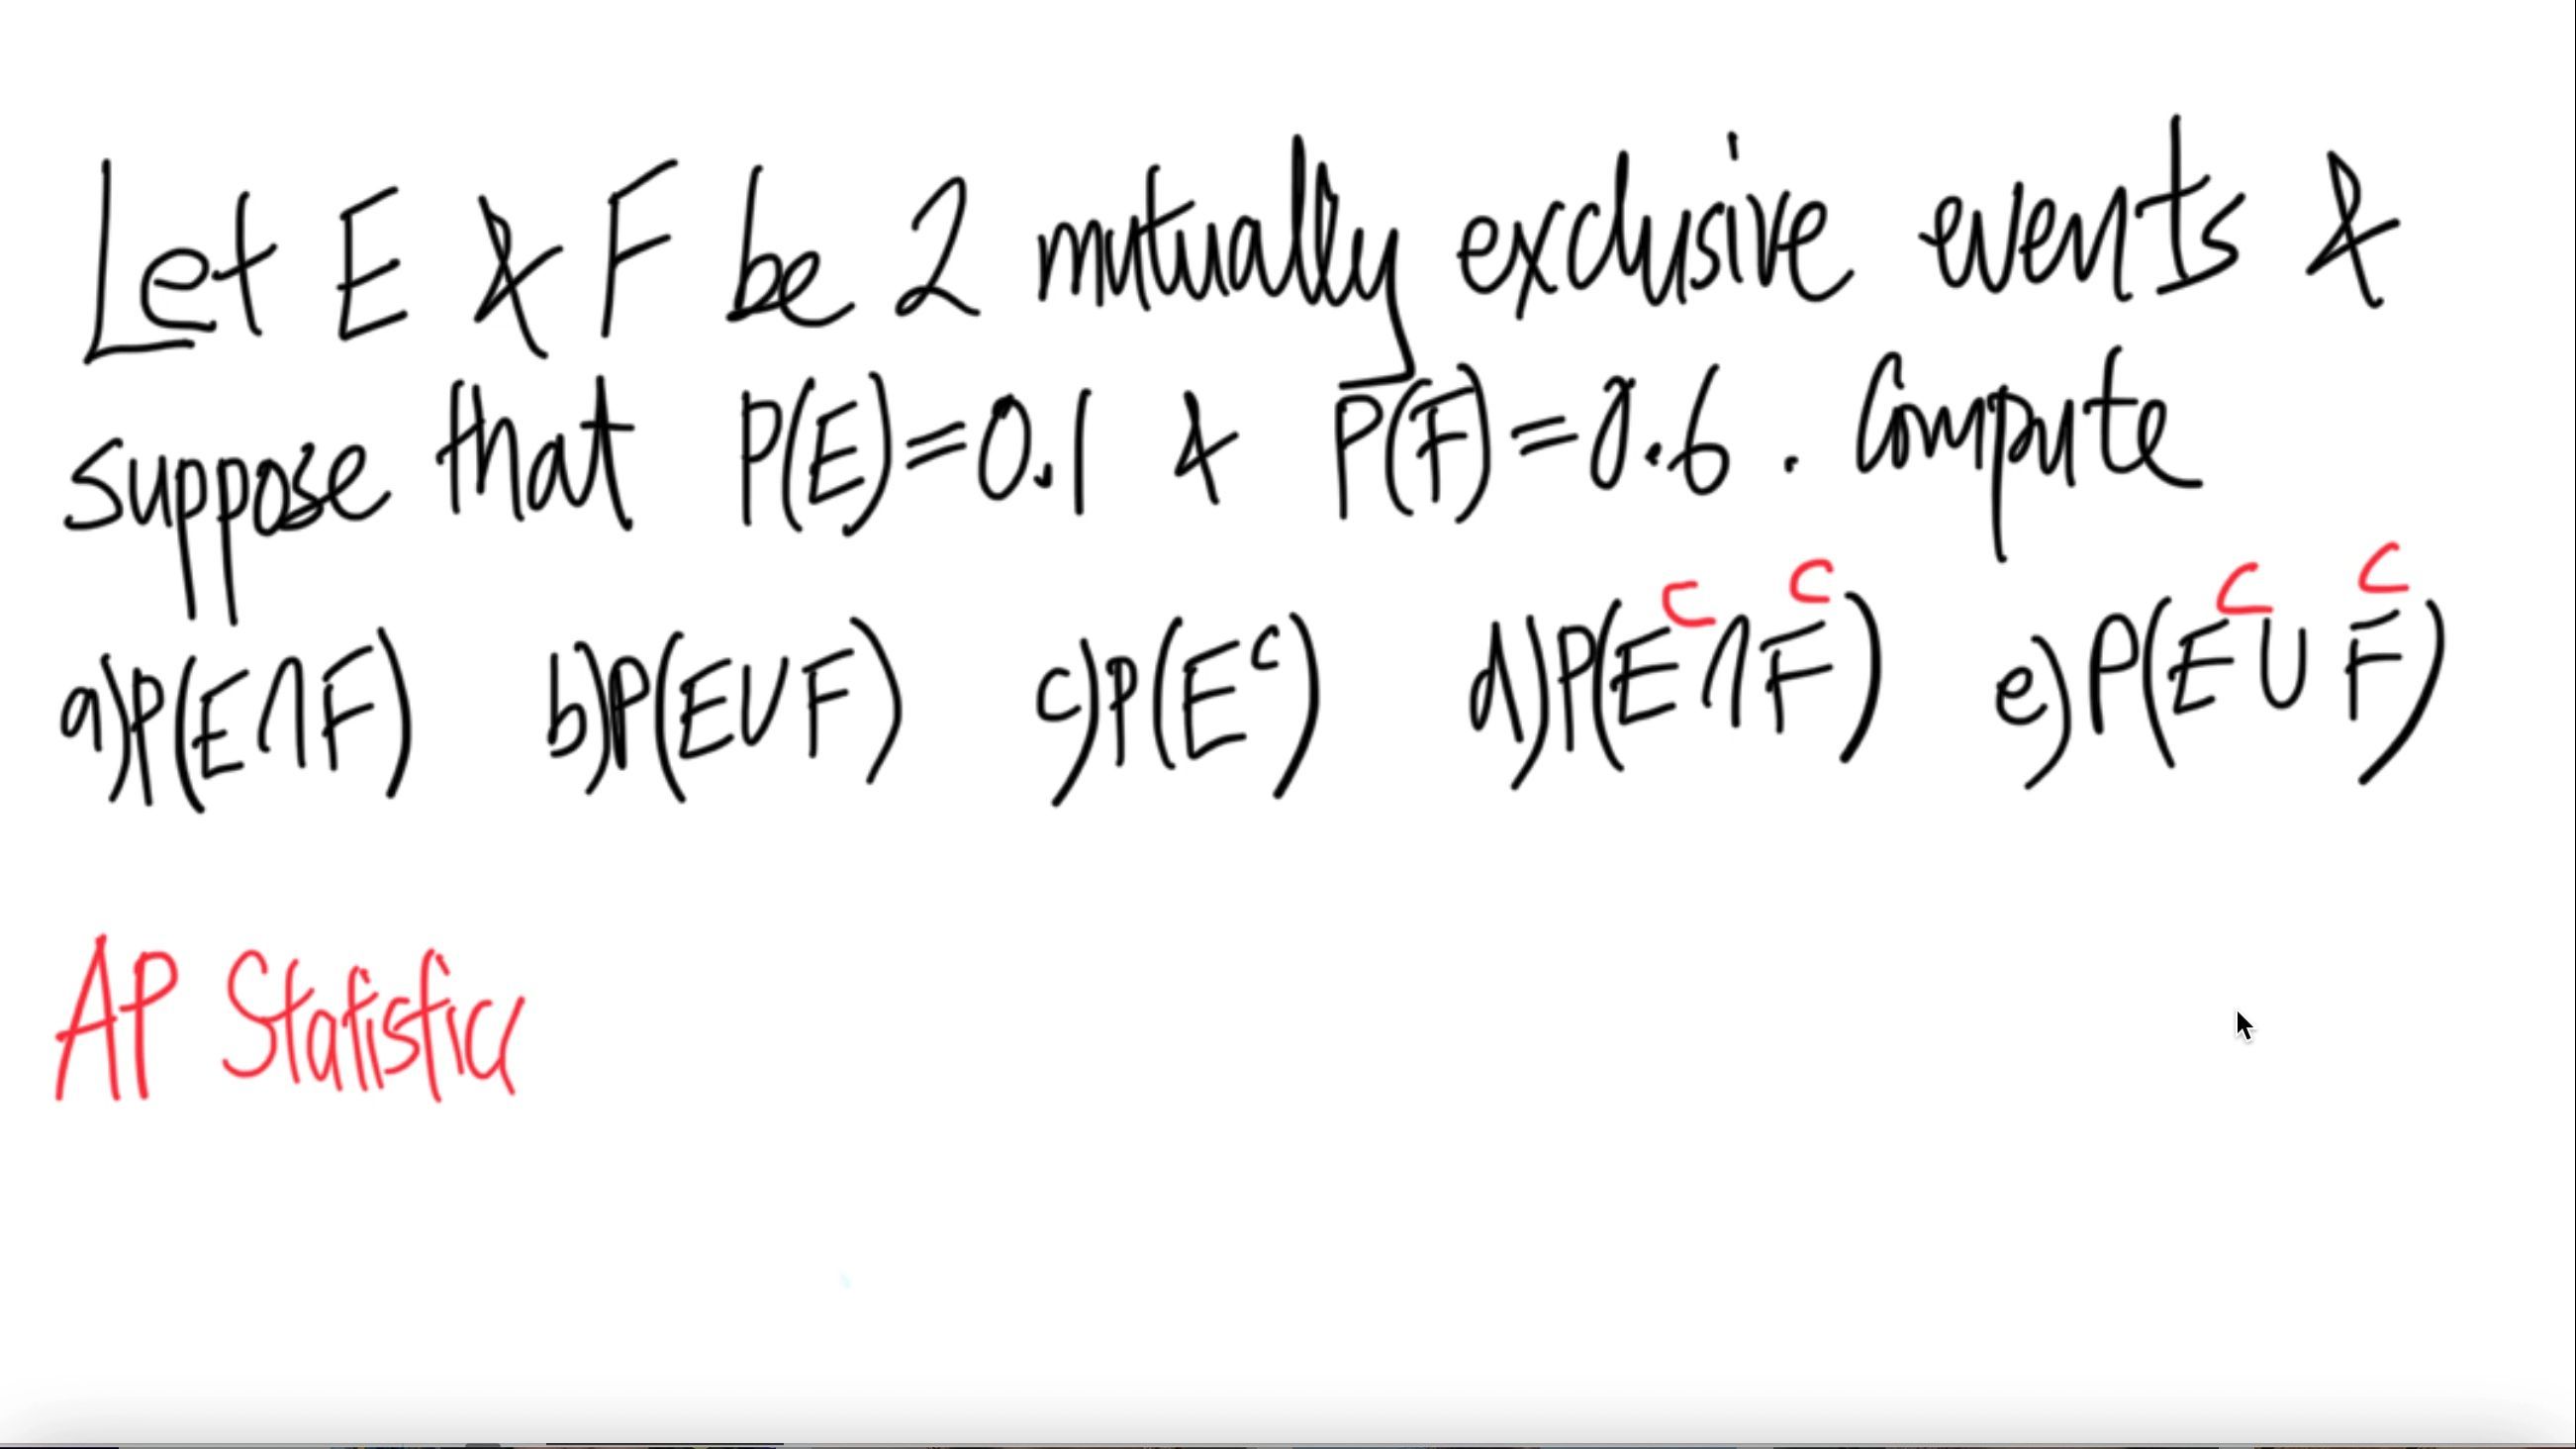 Let E & F be 2 mutually exclusive events &
suppose that P(E)=0.1 & P(F)=0.6. Compute
a)P(E∩F) b)P(E∪F) c)P(Eᶜ) d)P(Eᶜ∩Fᶜ) e)P(Eᶜ∪Fᶜ)
AP Statistics